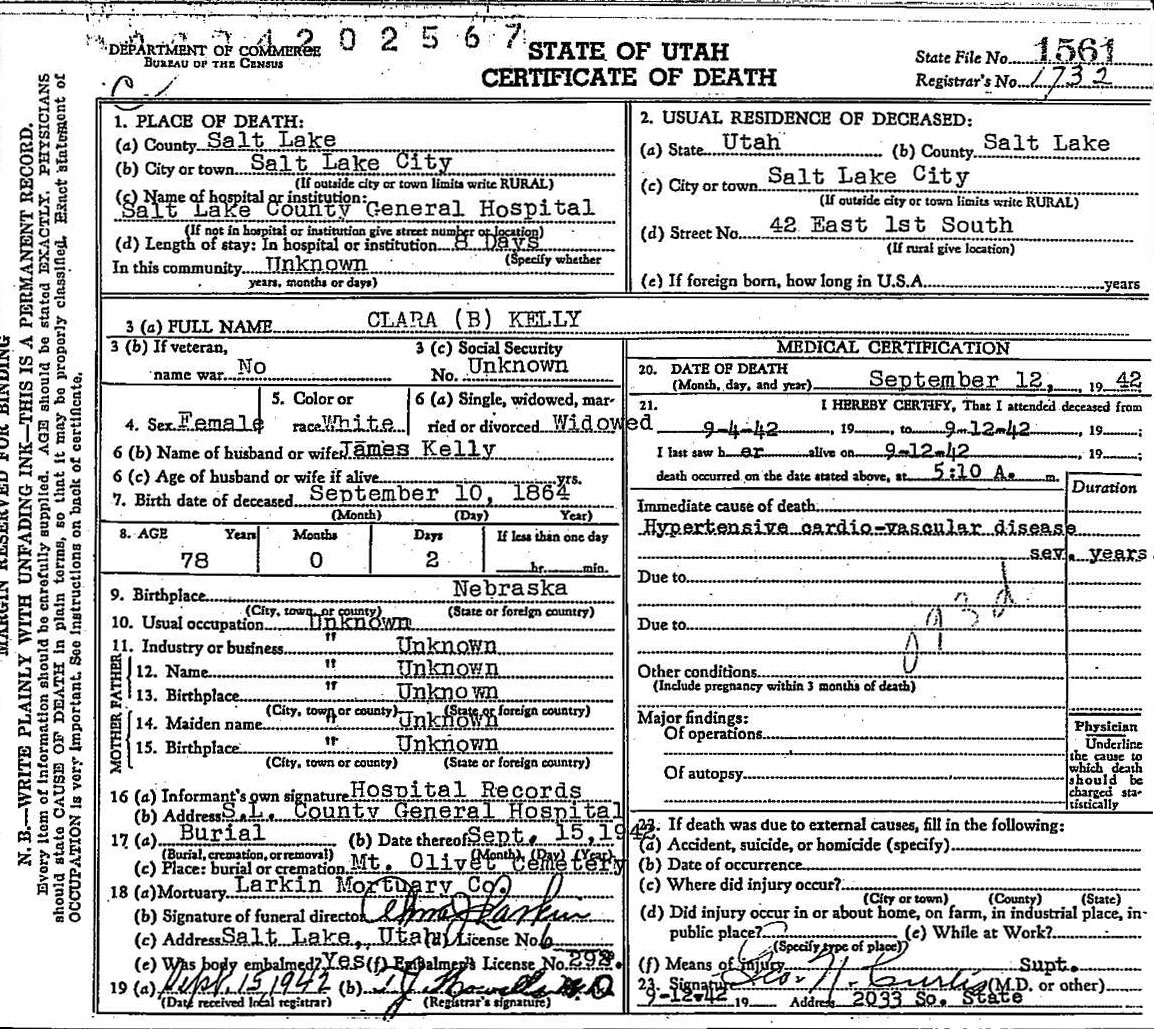 4 2 0 2 5 6 7
DEPARTMENT OF COMMERCE
BUREAU OF THE CENSUS
STATE OF UTAH
CERTIFICATE OF DEATH
State File No. 1561
Registrar's No. 1732
MARGIN RESERVED FOR BINDING
N. B.—WRITE PLAINLY WITH UNFADING INK—THIS IS A PERMANENT RECORD.
Every item of information should be carefully supplied. AGE should be stated EXACTLY. PHYSICIANS
should state CAUSE OF DEATH in plain terms, so that it may be properly classified. Exact statement of
OCCUPATION is very important. See instructions on back of certificate.
1. PLACE OF DEATH:
(a) County Salt Lake
(b) City or town Salt Lake City
(If outside city or town limits write RURAL)
(c) Name of hospital or institution:
Salt Lake County General Hospital
(If not in hospital or institution give street number or location)
(d) Length of stay: In hospital or institution 8 Days
(Specify whether
In this community Unknown
years, months or days)
2. USUAL RESIDENCE OF DECEASED:
(a) State Utah (b) County Salt Lake
(c) City or town Salt Lake City
(If outside city or town limits write RURAL)
(d) Street No. 42 East 1st South
(If rural give location)
(e) If foreign born, how long in U.S.A. years
3 (a) FULL NAME CLARA (B) KELLY
3 (b) If veteran,
name war No
3 (c) Social Security
No. Unknown
4. Sex Female
5. Color or
race White
6 (a) Single, widowed, mar-
ried or divorced Widowed
6 (b) Name of husband or wife James Kelly
6 (c) Age of husband or wife if alive yrs.
7. Birth date of deceased September 10, 1864
(Month) (Day) Year)
8. AGE Years Months Days If less than one day
78 0 2 hr. min.
9. Birthplace Nebraska
(City, town, or county) (State or foreign country)
10. Usual occupation Unknown
11. Industry or business " Unknown
FATHER
12. Name " Unknown
13. Birthplace " Unknown
(City, town or county) (State or foreign country)
MOTHER
14. Maiden name " Unknown
15. Birthplace " Unknown
(City, town or county) (State or foreign country)
16 (a) Informant's own signature Hospital Records
(b) Address S.L. County General Hospital
17 (a) Burial (b) Date thereof Sept. 15, 1942
(Burial, cremation, or removal) (Month) (Day) (Year)
(c) Place: burial or cremation Mt. Olivet Cemetery
18 (a) Mortuary Larkin Mortuary Co.
(b) Signature of funeral director Larkin
(c) Address Salt Lake, Utah (d) License No. 6
(e) Was body embalmed? Yes (f) Embalmer's License No. 292.
19 (a) Sept. 15 1942 (b) M.D.
(Date received local registrar) (Registrar's signature)
MEDICAL CERTIFICATION
20. DATE OF DEATH
(Month, day, and year) September 12, , 19 42
21. I HEREBY CERTIFY, That I attended deceased from
9-4-42 , 19 , to 9-12-42 , 19 ;
I last saw h er alive on 9-12-42 , 19 ;
death occurred on the date stated above, at 5:10 A. m.
Duration
Immediate cause of death
Hypertensive cardio-vascular disease
sev. years
Due to
Due to
Other conditions
(Include pregnancy within 3 months of death)
Major findings:
Of operations
Of autopsy
Physician
Underline
the cause to
which death
should be
charged sta-
tistically
22. If death was due to external causes, fill in the following:
(a) Accident, suicide, or homicide (specify)
(b) Date of occurrence
(c) Where did injury occur?
(City or town) (County) (State)
(d) Did injury occur in or about home, on farm, in industrial place, in-
public place? (e) While at Work?
(Specify type of place)
(f) Means of injury Supt.
23. Signature Geo. N. Curtis (M.D. or other)
9-12-42 19 Address 2033 So. State